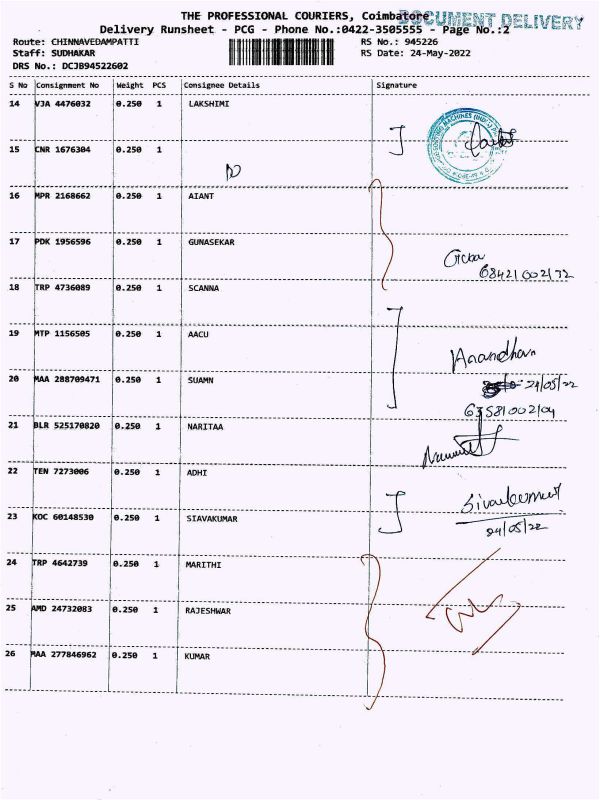 THE PROFESSIONAL COURIERS, Coimbatore
DOCUMENT DELIVERY
Delivery Runsheet - PCG - Phone No.:0422-3505555 - Page No.:2
Route: CHINNAVEDAMPATTI RS No.: 945226
Staff: SUDHAKAR RS Date: 24-May-2022
DRS No.: DCJB94522602
S No Consignment No Weight PCS Consignee Details Signature
14 VJA 4476032 0.250 1 LAKSHIMI
15 CNR 1676304 0.250 1
16 MPR 2168662 0.250 1 AIANT
17 PDK 1956596 0.250 1 GUNASEKAR
18 TRP 4736089 0.250 1 SCANNA
19 MTP 1156505 0.250 1 AACU
Anandhan
20 MAA 288709471 0.250 1 SUAMN
24/05/22
21 BLR 525170820 0.250 1 NARITAA
22 TEN 7273006 0.250 1 ADHI
Sivakumar
23 KOC 60148530 0.250 1 SIAVAKUMAR
24/05/22
24 TRP 4642739 0.250 1 MARITHI
25 AMD 24732083 0.250 1 RAJESHWAR
26 MAA 277846962 0.250 1 KUMAR